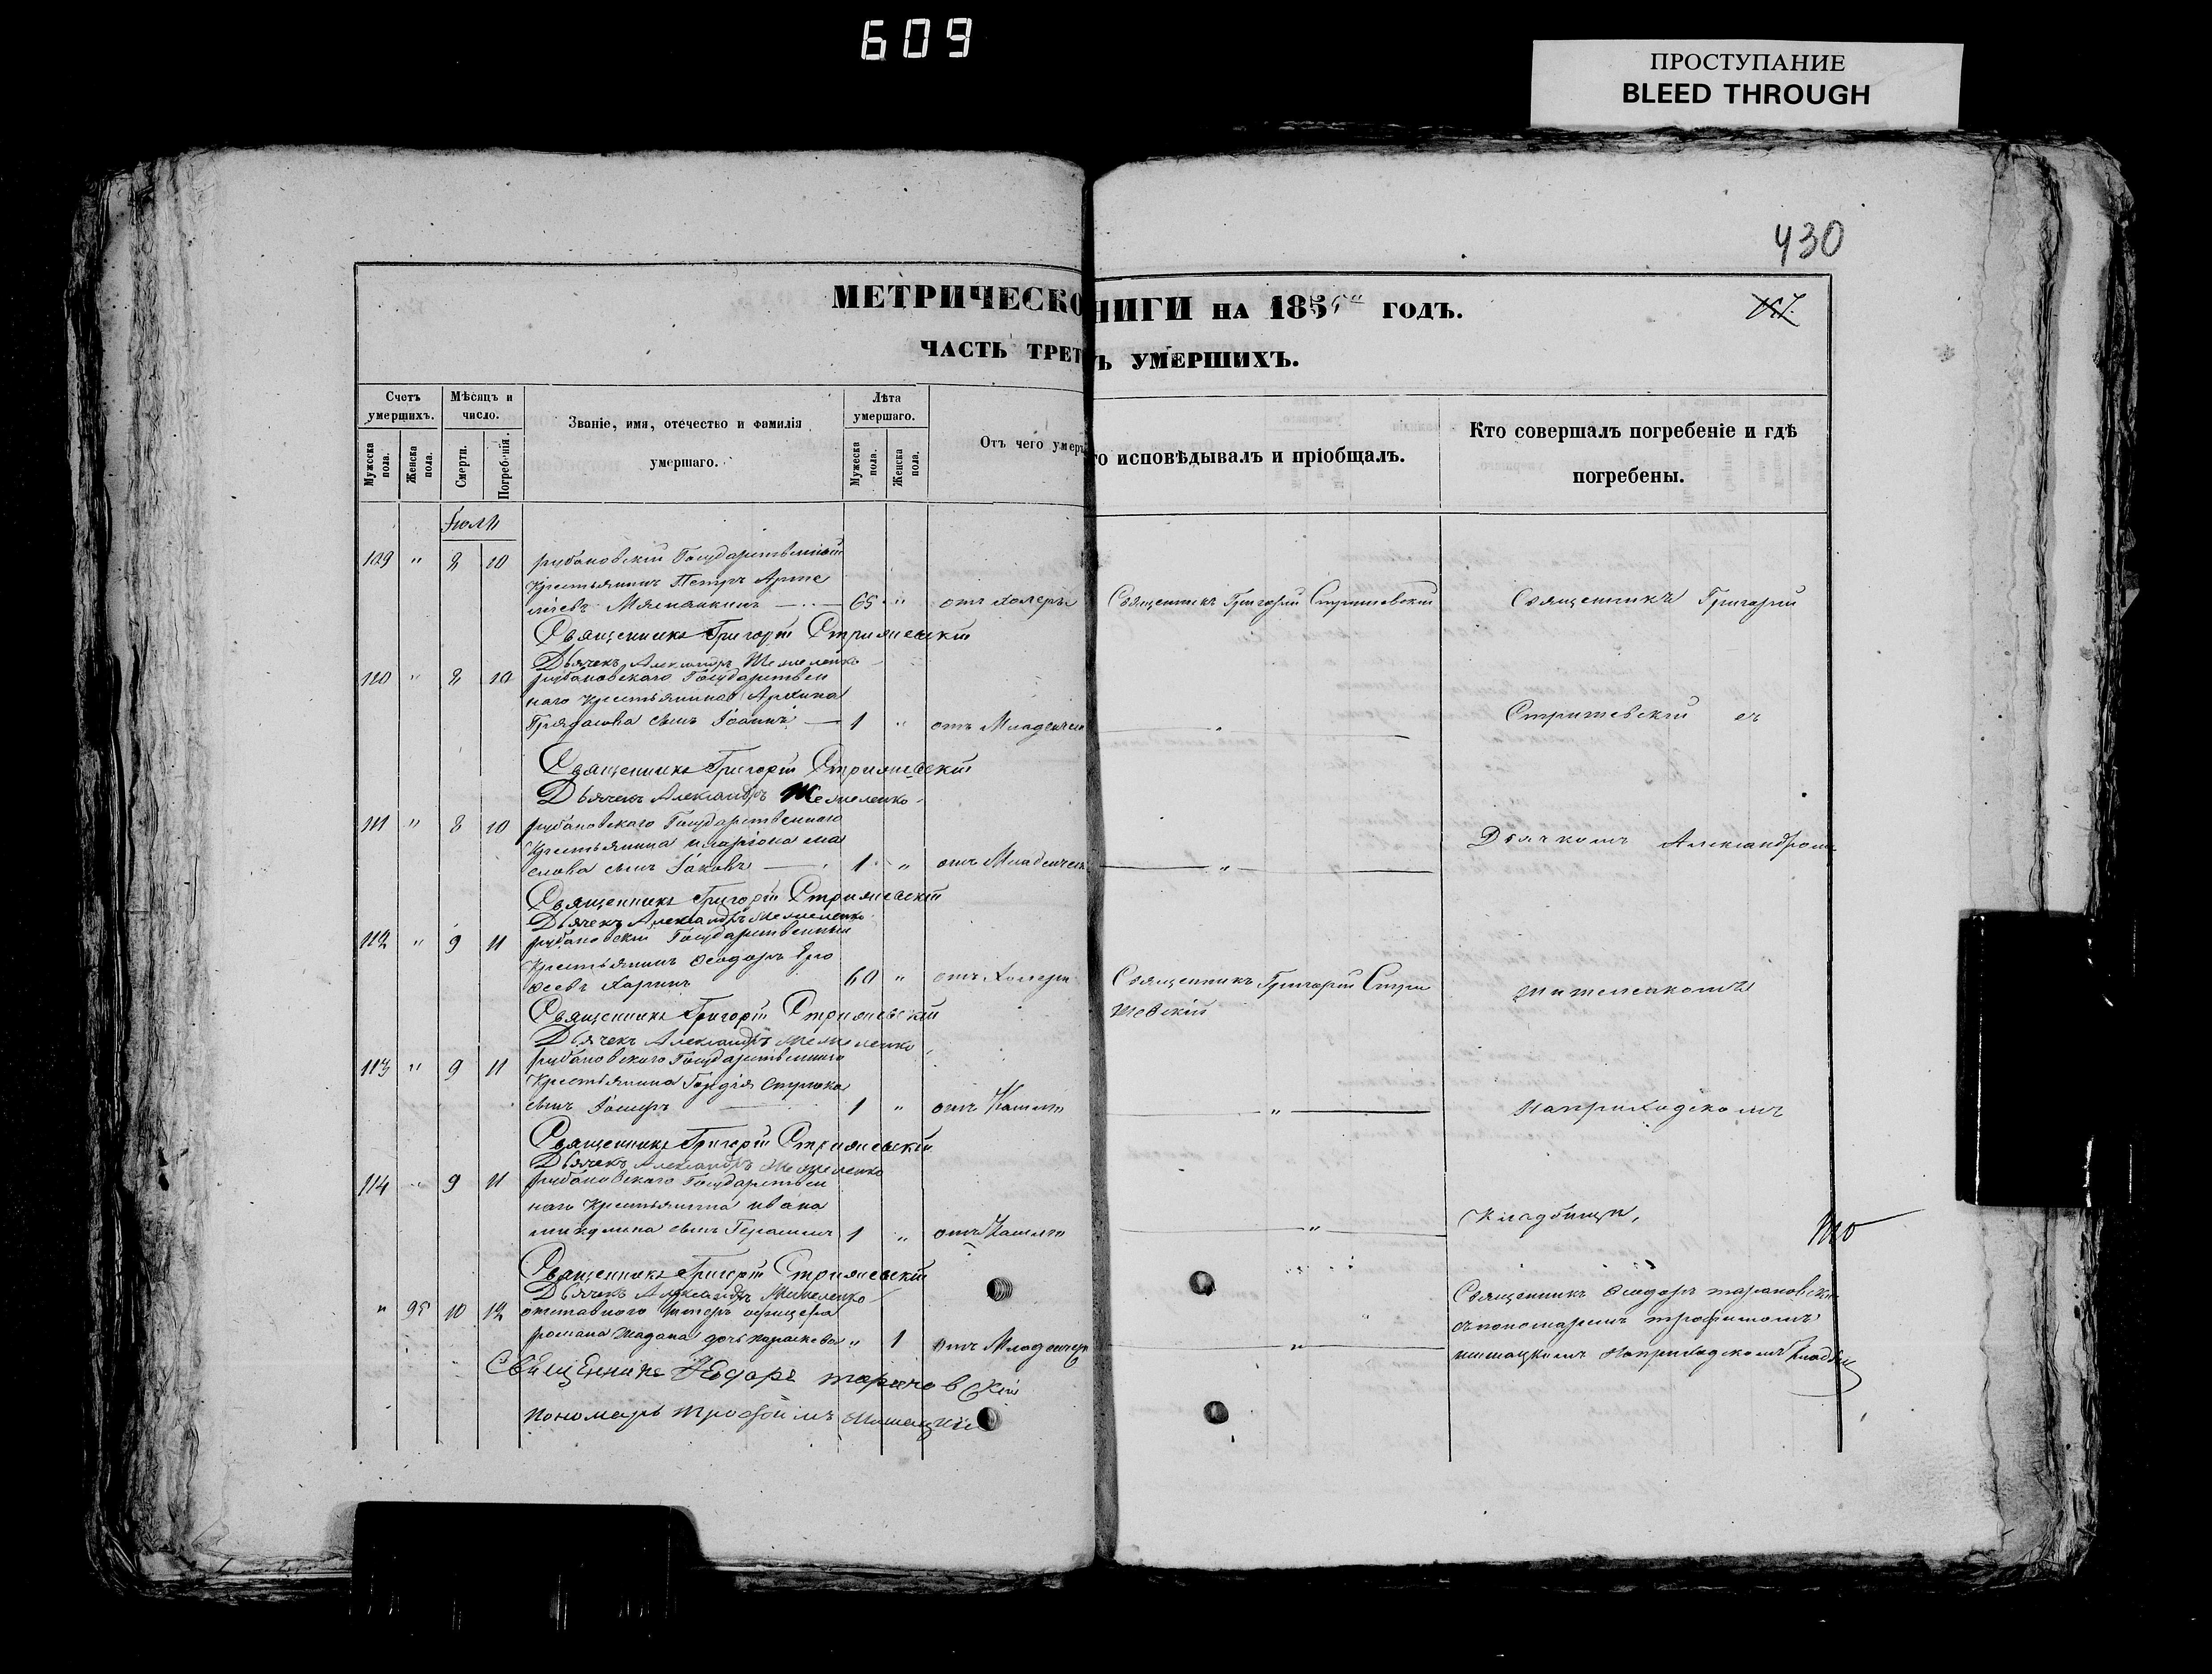 609
ПРОСТУПАНИЕ
BLEED THROUGH
430
МЕТРИЧЕСКО НИГИ НА 185 ГОДЪ.
ЧАСТЬ ТРЕТ Ъ УМЕРШИХЪ.
Счетъ умершихъ.
Мужеска пола.
Женска пола.
Мѣсяцъ и число.
Смерти.
Погребенія.
Званіе, имя, отечество и фамилія
умершаго.
Лѣта умершаго.
Мужеска пола.
Женска пола.
Отъ чего умеръ
го исповѣдывалъ и пріобщалъ.
Кто совершалъ погребеніе и гдѣ
погребены.
Іюль
109 " 8 10 рубановскій Государственный
Крестьянинъ Петръ Арте
65 " отъ холеры Священникъ Григорій Стришевскій Священникъ Григорій
Священникъ Григорій Стрижевскій
Дьячекъ Александръ
110 " 8 10 рубановскаго Государствен
наго Крестьянина Архипа
сынъ Іоаннъ — 1 " отъ Младенческ " Стришевскій съ
Священникъ Григорій Стрижевскій
Дьячекъ Александръ
111 " 8 10 рубановскаго Государственнаго
Крестьянина Иларіона Ма
слова сынъ Іаковъ — 1 " отъ Младенческ " Дьячкомъ Александромъ
Священникъ Григорій Стрижевскій
Дьячекъ Александръ
112 " 9 11 рубановскій Государственный
Крестьянинъ Ѳеодоръ Еро
ѳеевъ Харинъ 60 " отъ Холеры Священникъ Григорій Стри
шевскій
Священникъ Григорій Стрижевскій
Дьячекъ Александръ
113 " 9 11 рубановскаго Государственнаго
Крестьянина Гордія
сынъ Іосифъ 1 " отъ Кашля " на приходскомъ
Священникъ Григорій Стрижевскій
Дьячекъ Александръ
114 " 9 11 рубановскаго Государствен
наго Крестьянина Ивана
сынъ Герасимъ 1 " отъ Кашля " Кладбищи,
Священникъ Григорій Стрижевскій
Дьячекъ Александръ
" 95 10 12 отставного унтеръ офицера
романа Жадана дочь параскева " 1 отъ Младенчес "
Священникъ Ѳеодоръ тарановскі
съ пономаремъ трофимомъ
на приходскомъ кладби
Священникъ Ѳеодоръ тарановскій
Пономарь Трофимъ